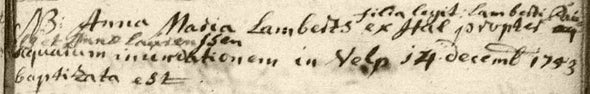 NB: Anna Maria Lamberts filia legit: Lamberti
et Annæ ex Hal propter
aquarum inundationem in Velp 14 decemb 1743
baptizata est